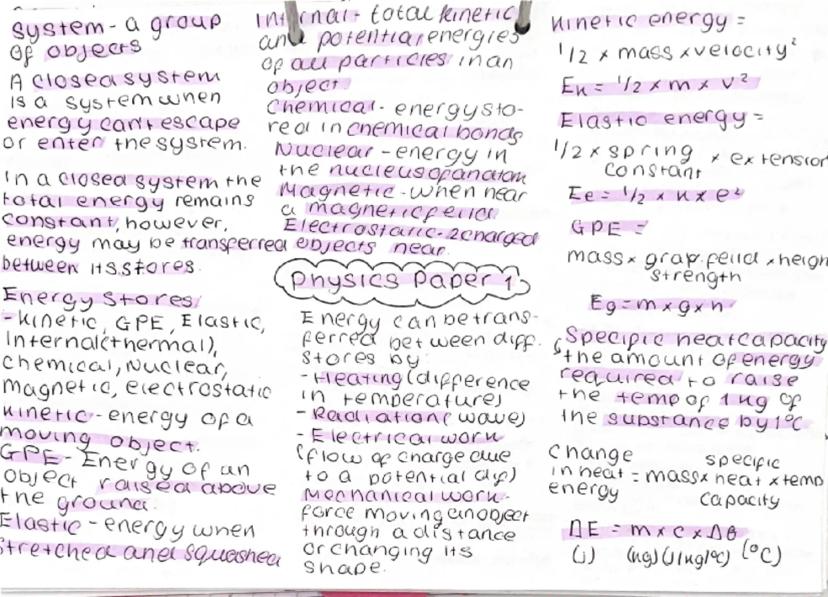 system - a group
of objects
A closed system
is a system when
energy can't escape
or enter the system.
in a closed system the
total energy remains
constant, however,
energy may be transferred
between its stores.
Energy Stores
- kinetic, GPE, Elastic,
Internal (thermal),
chemical, Nuclear,
magnetic, electrostatic
kinetic - energy of a
moving object.
GPE - Energy of an
object raised above
the ground.
Elastic - energy when
stretched and squashed
Internal - total kinetic
and potential energies
of all particles in an
object
Chemical - energy sto-
red in chemical bonds
Nuclear - energy in
the nucleus of an atom
Magnetic - when near
a magnetic field
Electrostatic - 2 charged
objects near.
Physics Paper 1
Energy can be trans-
ferred between diff.
stores by:
- Heating (difference
in temperature)
- Radiation (wave)
- Electrical work
(flow of charge due
to a potential dif)
Mechanical work -
force moving an object
through a distance
or changing its
shape.
kinetic energy =
1/2 × mass × velocity²
Ek = 1/2 × m × v²
Elastic energy =
1/2 × spring constant × extension
Ee = 1/2 × k × e²
GPE =
mass × grav. feild strength × heigh
Eg = m × g × h
Specific heat capacity
the amount of energy
required to raise
the temp of 1kg of
the substance by 1°C
change in heat energy = mass × specific heat capacity × temp
ΔE = m × c × Δθ
(J) (kg) (J/kg/°C) (°C)